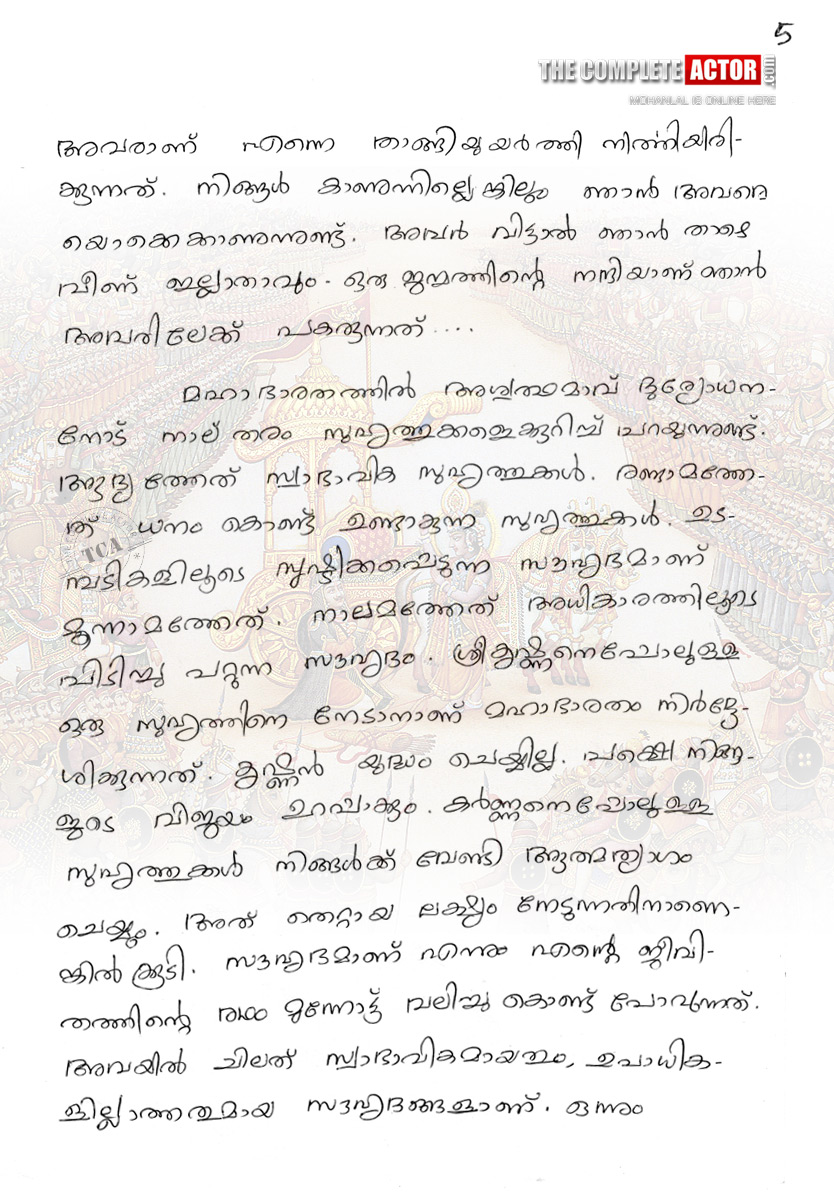 5
THE COMPLETE ACTOR .com
MOHANLAL IS ONLINE HERE
അവരാണ് എന്നെ താങ്ങിയുയർത്തി നിർത്തിയിരി-
ക്കുന്നത്. നിങ്ങൾ കാണുന്നില്ലെങ്കിലും ഞാൻ അവരെ
യൊക്കെകാണുന്നുണ്ട്. അവർ വിട്ടാൽ ഞാൻ താഴെ
വീണ് ഇല്ലാതാവും. ഒരു ജന്മത്തിന്റെ നന്ദിയാണ് ഞാൻ
അവരിലേക്ക് പകരുന്നത് ....
മഹാഭാരതത്തിൽ അശ്വത്ഥമാവ് ദുര്യോധന-
നോട് നാല് തരം സുഹൃത്തുക്കളെക്കുറിച്ച് പറയുന്നുണ്ട്.
ആദ്യത്തേത് സ്വാഭാവിക സുഹൃത്തുക്കൾ. രണ്ടാമത്തേ-
ത് ധനം കൊണ്ട് ഉണ്ടാകുന്ന സുഹൃത്തുകൾ. ഉട-
മ്പടികളിലൂടെ സൃഷ്ടിക്കപ്പെടുന്ന സൗഹൃദമാണ്
മൂന്നാമത്തേത്. നാലമത്തേത് അധികാരത്തിലൂടെ
പിടിച്ചു പറ്റുന്ന സൗഹൃദം. ശ്രീകൃഷ്ണനെപ്പോലുള്ള
ഒരു സുഹൃത്തിനെ നേടാനാണ് മഹാഭാരതം നിർദ്ദേ-
ശിക്കുന്നത്. കൃഷ്ണൻ യുദ്ധം ചെയ്യില്ല. പക്ഷെ നിങ്ങ-
ളുടെ വിജയം ഉറപ്പാക്കും. കർണ്ണനെപ്പോലുള്ള
സുഹൃത്തുക്കൾ നിങ്ങൾക്ക് വേണ്ടി ആത്മത്യാഗം
ചെയ്യും. അത് തെറ്റായ ലക്ഷ്യം നേടുന്നതിനാണെ-
ങ്കിൽ കൂടി. സൗഹൃദമാണ് എന്നും എന്റെ ജീവി-
തത്തിന്റെ രഥം മുന്നോട്ട് വലിച്ചു കൊണ്ട് പോവുന്നത്.
അവയിൽ ചിലത് സ്വാഭാവികമായതും, ഉപാധിക-
ളില്ലാത്തതുമായ സൗഹൃദങ്ങളാണ്. ഒന്നും
TCA